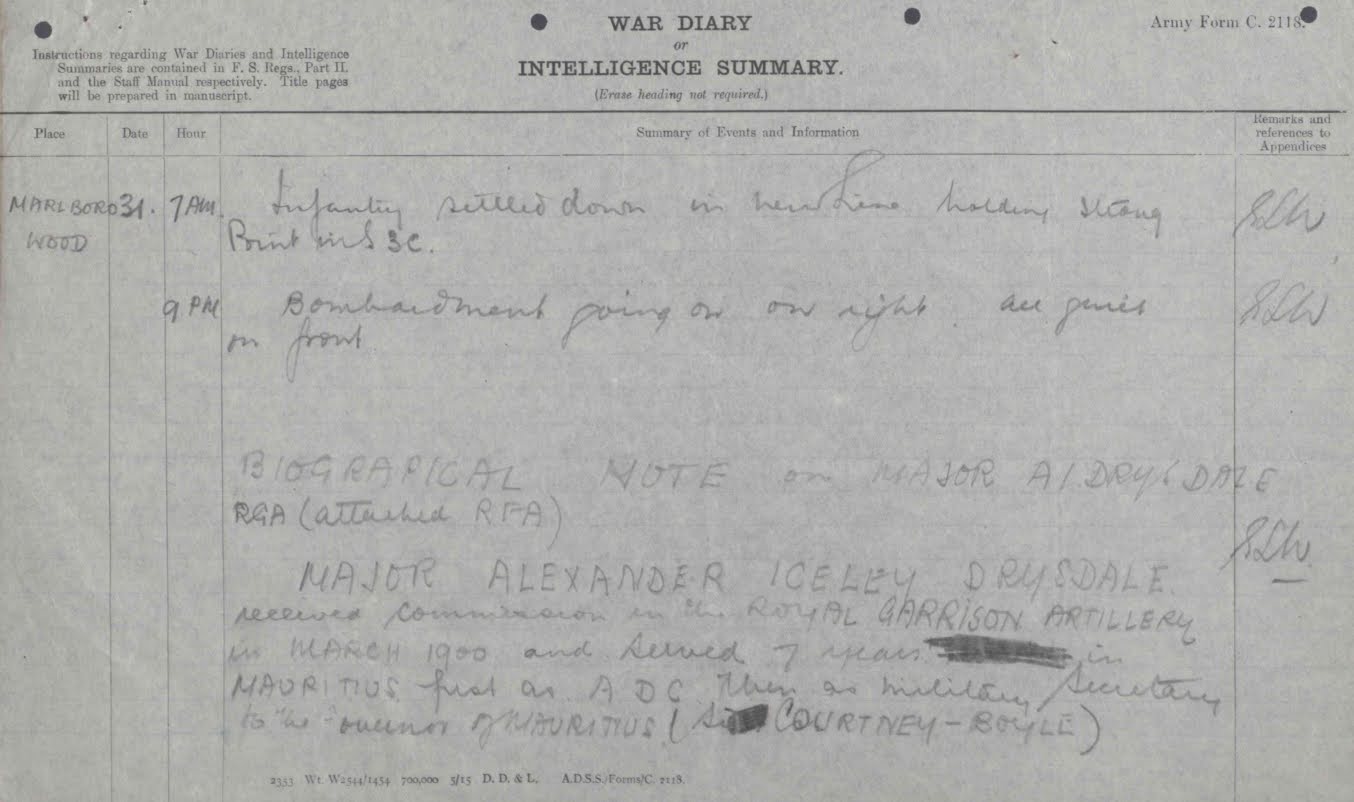 WAR DIARY
or
INTELLIGENCE SUMMARY.
(Erase heading not required.)
Army Form C. 2118.
Instructions regarding War Diaries and Intelligence
Summaries are contained in F. S. Regs., Part II.
and the Staff Manual respectively. Title pages
will be prepared in manuscript.
Place Date Hour Summary of Events and Information Remarks and
references to
Appendices
MARLBORO 31. 7AM. Infantry settled down in new Line holding strong
WOOD Point in S 3C.
9 PM Bombardment going on on right. all quiet
on front
BIOGRAPICAL NOTE on MAJOR A I DRYSDALE
RGA (attached RFA)
MAJOR ALEXANDER ICELEY DRYSDALE
received commission in the ROYAL GARRISON ARTILLERY
in MARCH 1900 and served 7 years in
MAURITIUS first as A D C then as military Secretary
to the Governor of MAURITIUS (Sir COURTNEY-BOYLE)
2353 Wt. W2544/1454 700,000 5/15 D. D. & L. A.D.S.S./Forms/C. 2118.